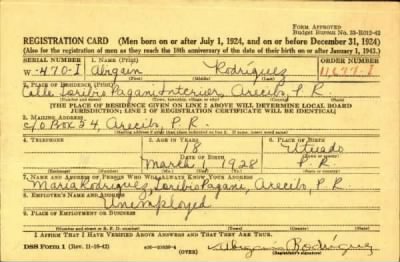 FORM APPROVED
Budget Bureau No. 33-R012-42
REGISTRATION CARD (Men born on or after July 1, 1924, and on or before December 31, 1924)
(Also for the registration of men as they reach the 18th anniversary of the date of their birth on or after January 1, 1943.)
SERIAL NUMBER 1. NAME (Print) ORDER NUMBER
W-470-I Abigain Rodriguez 11677-I
2. PLACE OF RESIDENCE (Print)
Calle Toribio Pagani Interior, Arecibo, P. R.
[THE PLACE OF RESIDENCE GIVEN ON LINE 2 ABOVE WILL DETERMINE LOCAL BOARD
JURISDICTION; LINE 2 OF REGISTRATION CERTIFICATE WILL BE IDENTICAL]
3. MAILING ADDRESS
c/o Box 54, Arecibo P. R.
4. TELEPHONE 5. AGE IN YEARS 6. PLACE OF BIRTH
18 Utuado
DATE OF BIRTH
March 1, 1928 P. R.
7. NAME AND ADDRESS OF PERSON WHO WILL ALWAYS KNOW YOUR ADDRESS
Maria Rodriguez, Toribio Pagani, Arecibo, P. R.
8. EMPLOYER'S NAME AND ADDRESS
Unemployed
9. PLACE OF EMPLOYMENT OR BUSINESS
I AFFIRM THAT I HAVE VERIFIED ABOVE ANSWERS AND THAT THEY ARE TRUE.
DSS Form 1 (Rev. 11-16-42) (OVER) Rodríguez
(Registrant's signature)